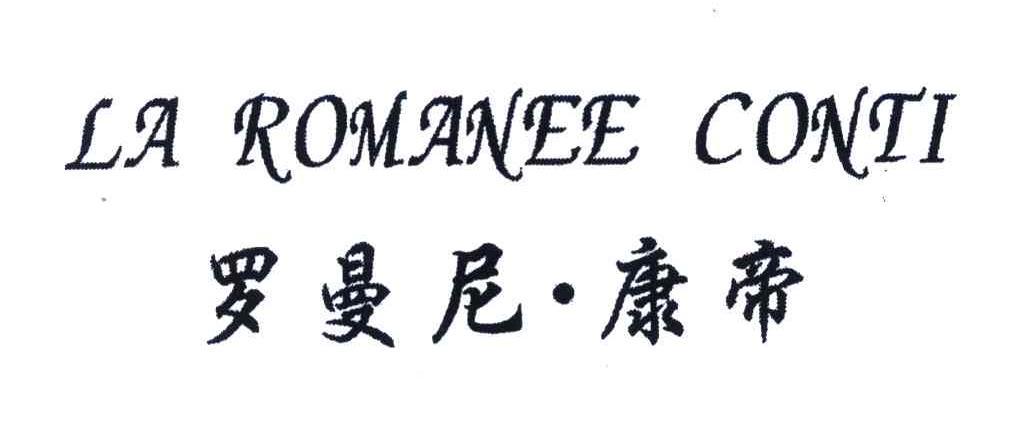 LA ROMANEE CONTI
罗曼尼·康帝